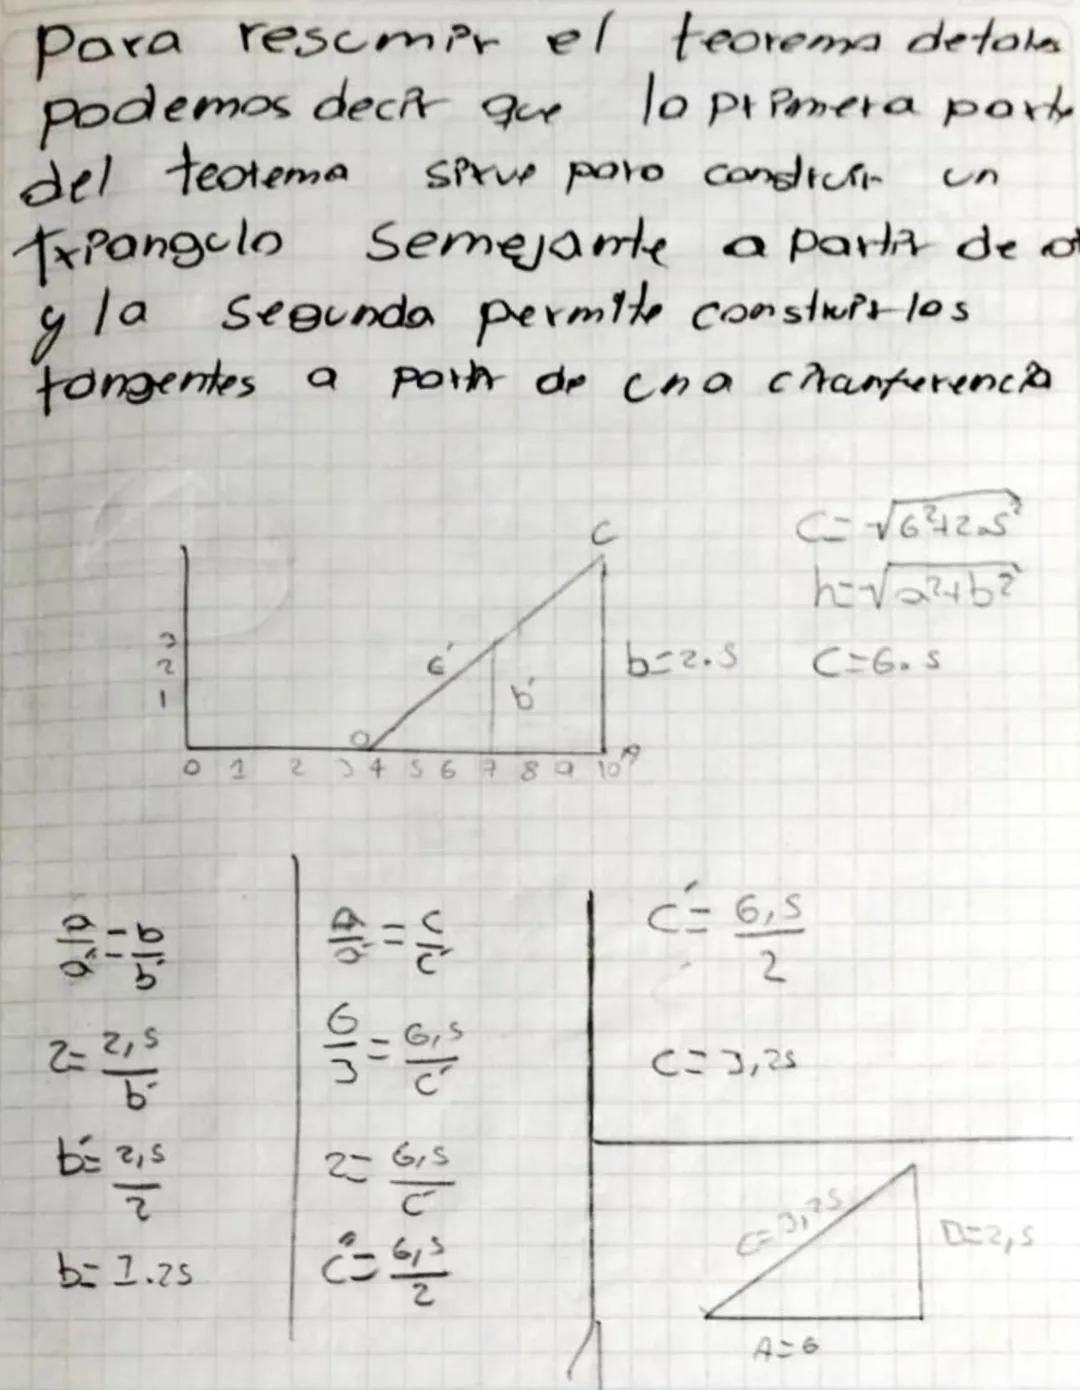 para resumir el teorema detales
podemos decir que la primera parte
del teorema sirve para construir un
triangulo semejante a partir de ot
y la segunda permite construir los
tangentes a partir de una circunferencia
C
C=√6²+2.5²
h=√a²+b²
3
2
1
c'
b'
b=2.5
C=6.5
O
A
0 1 2 3 4 5 6 7 8 9 10
a/a' = b/b'
2= 2,5/b'
b'= 2,5/2
b= 1.25
A/a' = c/c'
6/3 = 6,5/c'
2= 6,5/c'
c'= 6,5/2
C'= 6,5/2
C= 3,25
C=3,25
B=2,5
A=6